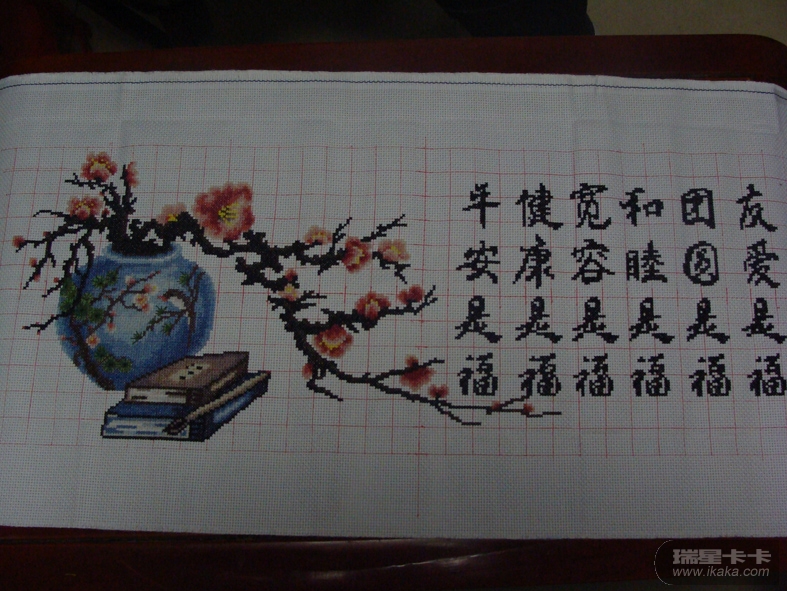 平安是福
健康是福
宽容是福
和睦是福
团圆是福
友爱是福
瑞星卡卡
www.ikaka.com